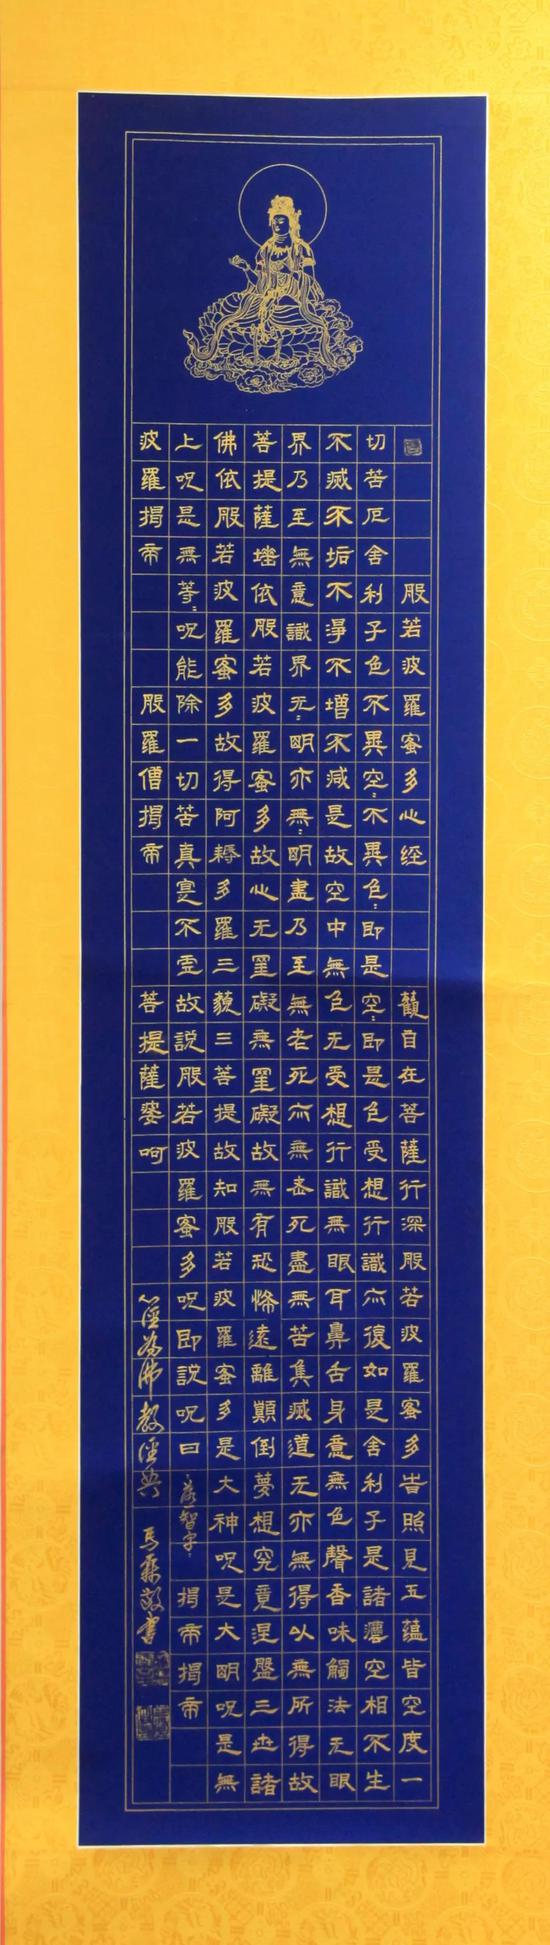 般若波羅蜜多心经 觀自在菩薩行深般若波羅蜜多旹照見五蕴皆空度一
切苦厄舍利子色不異空〻不異色〻即是空〻即是色受想行識亦復如是舍利子是諸灋空相不生
不滅不垢不淨不增不減是故空中無色无受想行識無眼耳鼻舌身意無色聲香味觸法无眼
界乃至無意識界无〻明亦無〻明盡乃至無老死亦無老死盡無苦集滅道无亦無得以無所得故
菩提薩埵依般若波羅蜜多故心无罣礙無罣礙故無有恐怖遠離顛倒夢想究竟涅盤三世諸
佛依般若波羅蜜多故得阿耨多羅三藐三菩提故知般若波羅蜜多是大神呪是大明呪是無
上呪是無等〻呪能除一切苦真寔不虛故說般若波羅蜜多呪即說呪曰 落智字 揭帝揭帝
波羅揭帝 般羅僧揭帝 菩提薩婆呵 心経為佛教経典 馬霖敬書